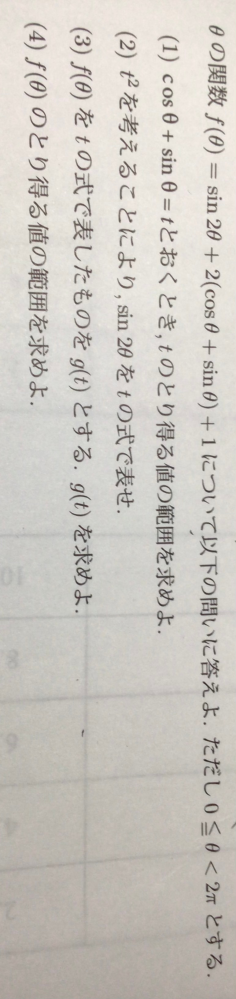 θの関数 f(θ) = sin 2θ + 2(cos θ + sin θ) + 1 について以下の問いに答えよ. ただし 0 ≦ θ < 2π とする.
(1) cos θ + sin θ = t とおくとき, t のとり得る値の範囲を求めよ.
(2) t² を考えることにより, sin 2θ を t の式で表せ.
(3) f(θ) を t の式で表したものを g(t) とする. g(t) を求めよ.
(4) f(θ) のとり得る値の範囲を求めよ.
10
8
6
4
2